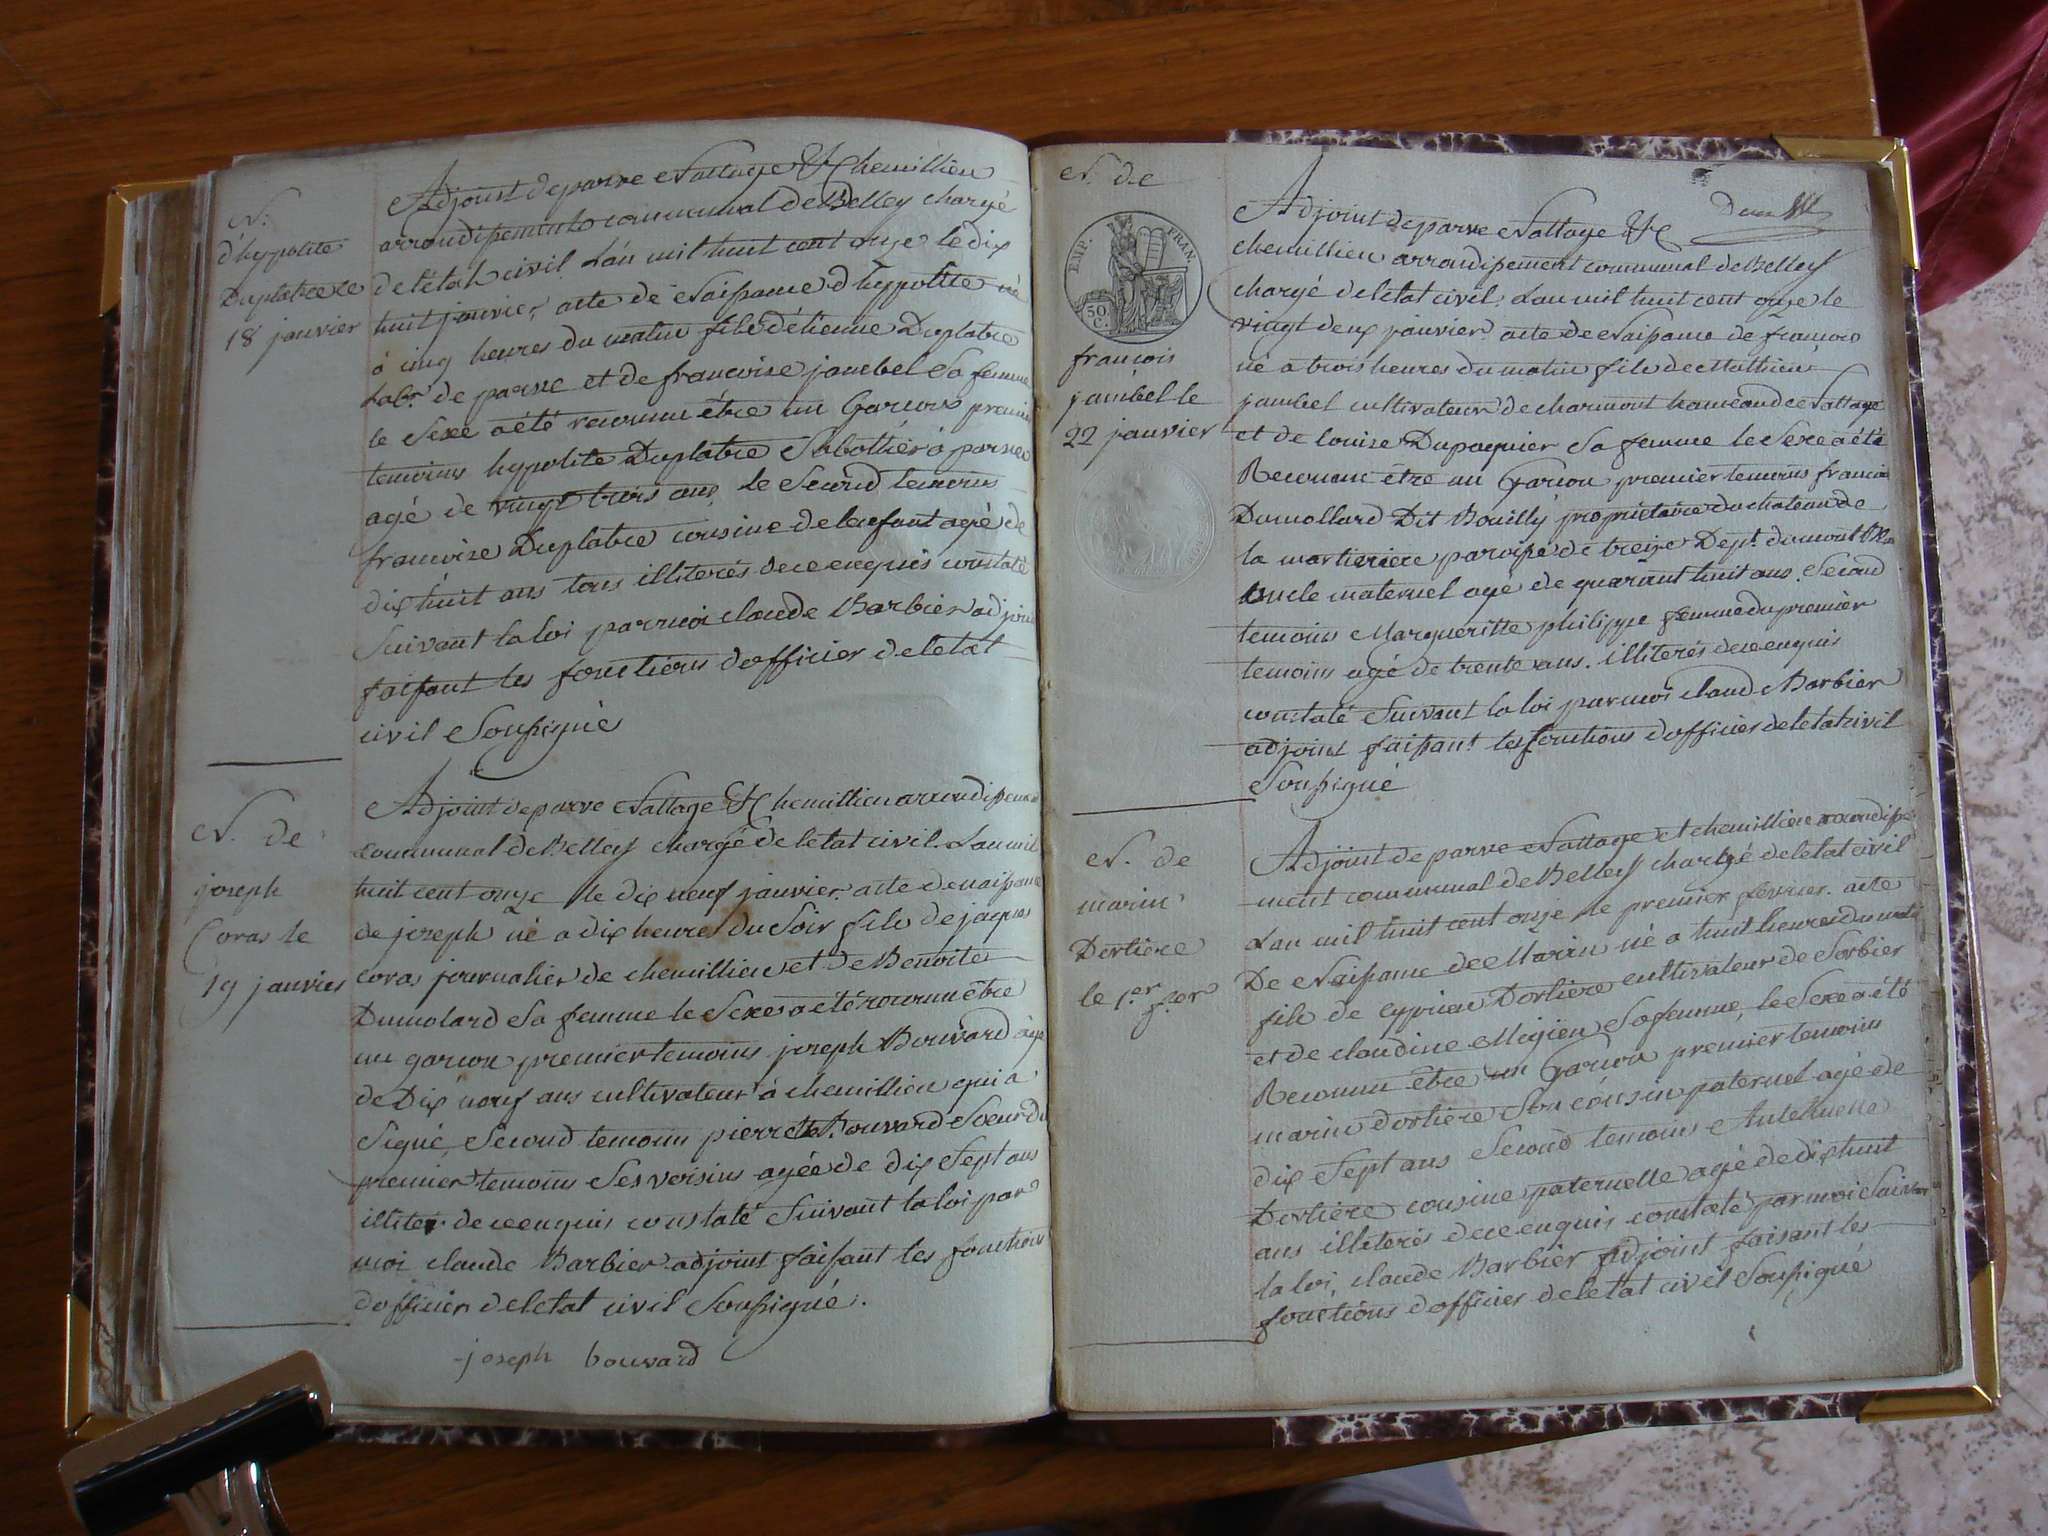 N.
d'hypolite
Duplatre le
18 janvier
Adjoint deparve Nattage & Chemillieu
arrondissement communal de Belley chargé
de l'état civil L'an mil huit cent onze le dix
huit janvier, acte de Naissance d'hypolite né
à cinq heures du matin fils d'étienne Duplatre
Labr. de parve et de francoise jambel Sa femme
le Sexe a été reconnu être un Garcon premier
temoins hypolite Duplatre Sabottier à parve
agé de vingt trois ans, le Second temoins
francoise Duplatre cousine de l'enfant agé de
dix huit ans tous illiterés dece enquis constaté
Suivant la loi par moi claude Barbier adjoint
faisant les fonctions d'officier de l'etat
civil Soussigné
N. de
joseph
Coras le
19 janvier
Adjoint de parve Nattage & Chemillieu arrondissement
communal de Belley chargé de l'etat civil. L'an mil
huit cent onze le dix neuf janvier. acte de naissance
de joseph né a dix heures du Soir fils de jacques
coras journalier de chemillieu et de Benoite
Dumolard Sa femme le Sexe a été reconnu être
un garcon premier temoins joseph Bouvard agé
de Dix neuf ans cultivateur à chemillieu qui a
Signé, Second temoins pierrette Bouvard Soeur du
premier temoins Ses voisins agée de dix Sept ans
illiter. dece enquis constaté Suivant la loi par
moi claude Barbier adjoint faisant les fonctions
d'officier de l'etat civil Soussigné.
joseph bouvard
N. de
EMP. FRAN.
50 C.
francois
jambel le
22 janvier
Deux
Adjoint de parve Nattage &
chemillieu arrondissement communal de Belley
chargé de l'etat civil, L'an mil huit cent onze le
vingt deux janvier. acte de Naissance de francois
né a trois heures du matin fils de Mathieu
jambel cultivateur de charmont hameau de Nattage
et de louise Dupaquier Sa femme le Sexe a été
Reconnu etre un Garcon premier temoins francois
Dumollard Dit Bouilly proprietaire du chateau de
la martiniere paroisse de treize Dept. du mont Blan
oncle maternel agé de quarant huit ans. Second
temoins Margueritte philippe femme du premier
temoins agé de trente ans. illiterés dece enquis
constaté Suivant la loi par moi Claud Barbier
adjoint faisant les fonctions d'officier de l'etat civil
Soussigné
N. de
marin
Dortiere
le 1.er f.er
Adjoint de parve Nattage et chemillieu arrondisse
ment communal de Belley chargé de l'etat civil
L'an mil huit cent onze le premier fevrier. acte
De Naissance de Marin né a huit heures du matin
fils de cyprien Dortiere cultivateur de Sorbier
et de claudine Megien Sa femme, le Sexe a été
Reconnu être un Garcon premier temoins
marin dortiere Son cousin paternel agé de
dix Sept ans Second temoins Anthelmette
Dortiere cousine paternelle agé de dix huit
ans illiterés dece enquis constaté par moi Suivant
la loi, claude Barbier Adjoint faisant les
fonctions d'officier de l'etat civil Soussigné